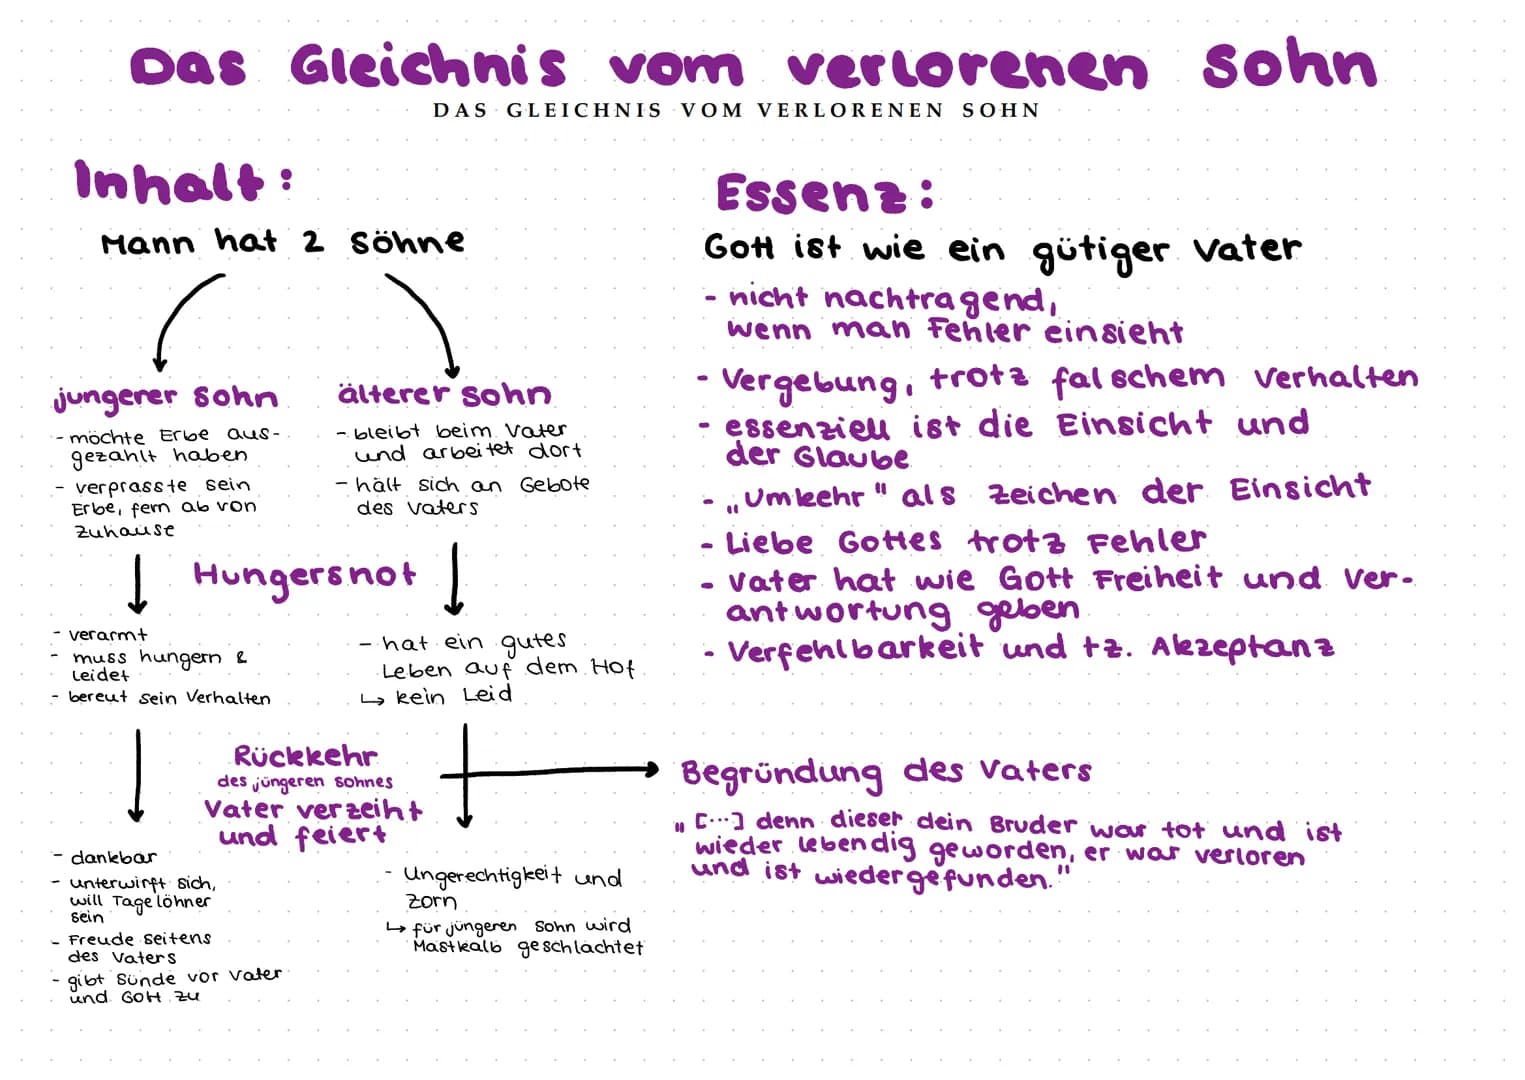 Das Gleichnis vom verlorenen Sohn
DAS GLEICHNIS VOM VERLORENEN SOHN
Inhalt:
Mann hat 2 Söhne
jüngerer Sohn
- möchte Erbe aus-
gezahlt haben
- verprasste sein
Erbe, fern ab von
Zuhause
älterer Sohn
- bleibt beim Vater
und arbeitet dort
- hält sich an Gebote
des Vaters
Hungersnot
- verarmt
- muss hungern &
leidet
- bereut sein Verhalten
- hat ein gutes
Leben auf dem Hof
↳ kein Leid
Rückkehr
des jüngeren Sohnes
Vater verzeiht
und feiert
- dankbar
- unterwirft sich,
will Tagelöhner
sein
- Freude seitens
des Vaters
- gibt Sünde vor Vater
und Gott zu
- Ungerechtigkeit und
Zorn
↳ für jüngeren Sohn wird
Mastkalb geschlachtet
Essenz:
Gott ist wie ein gütiger Vater
- nicht nachtragend,
wenn man Fehler einsieht
- Vergebung, trotz falschem Verhalten
- essenziell ist die Einsicht und
der Glaube
- „Umkehr" als Zeichen der Einsicht
- Liebe Gottes trotz Fehler
- Vater hat wie Gott Freiheit und Ver-
antwortung geben
- Verfehlbarkeit und tz. Akzeptanz
Begründung des Vaters
„[...] denn dieser dein Bruder war tot und ist
wieder lebendig geworden, er war verloren
und ist wiedergefunden."